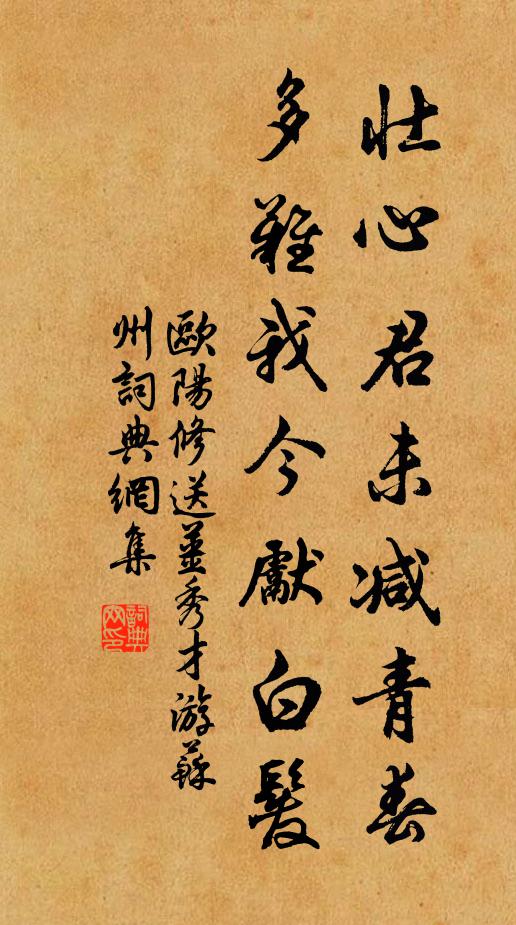 壯心君未減青春
多難我今獻白髮
歐陽修送姜秀才游蘇
州詞典網集
詞典網印